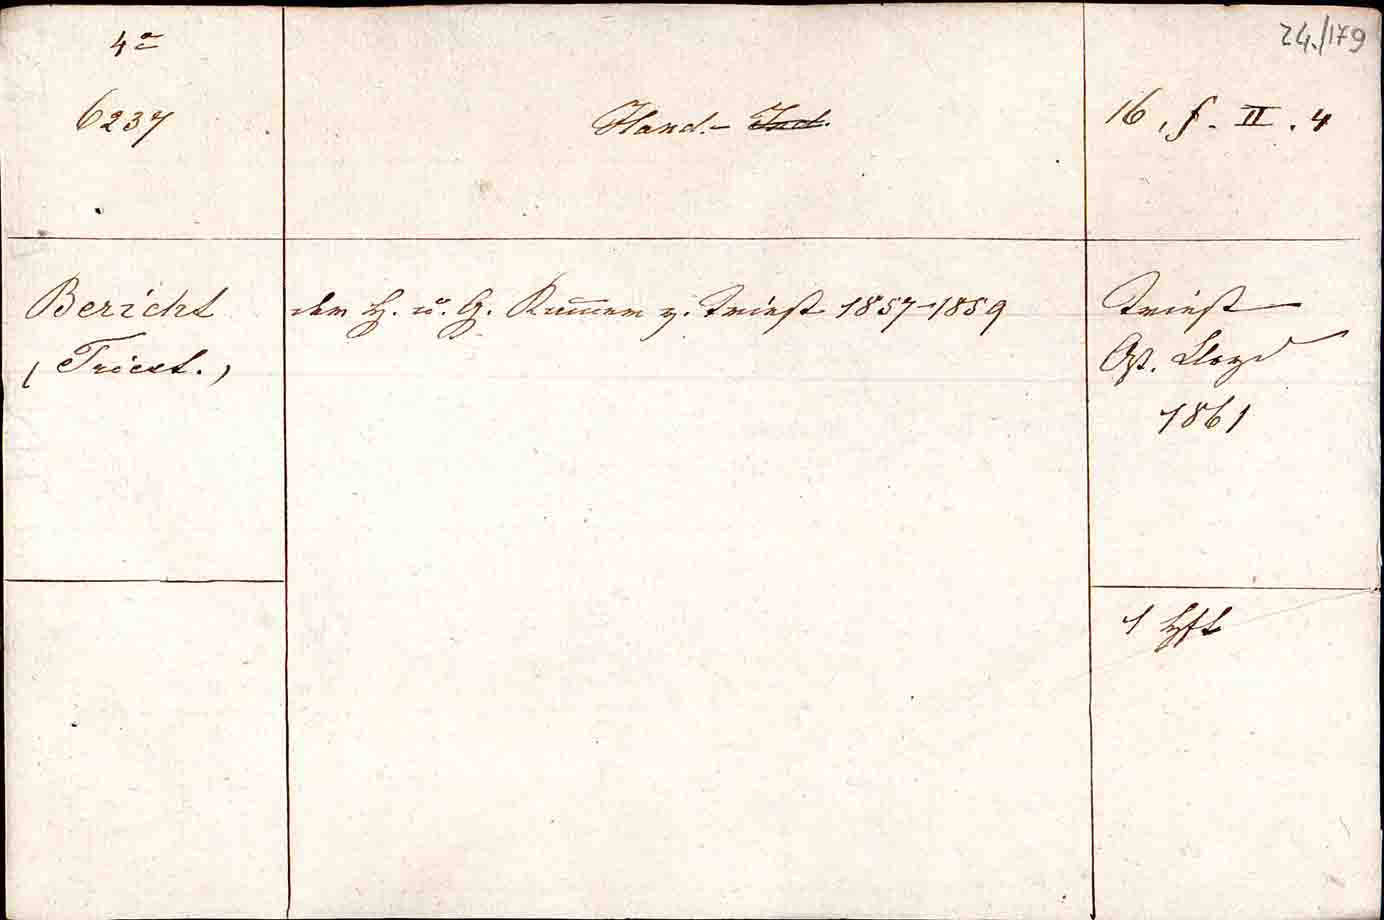 4°
24./179
6237
Hand.- Ind.
16, f. II. 4
Bericht
der H. u. G. Kam̅er z. Triest 1857-1859
Triest
(Triest.)
Öst. Lloyd
1861
1 Hft